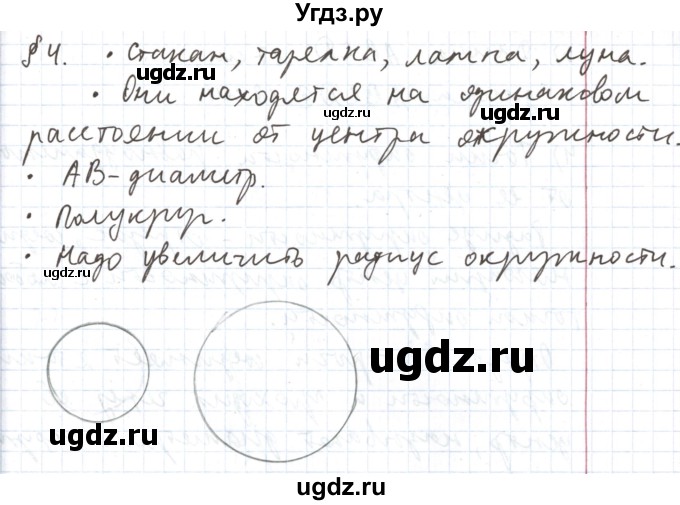 Угдз.ру
§ 4. • Стакан, тарелка, лампа, луна.
ugdz.ru
• Они находятся на одинаковом
расстоянии от центра окружности.
• AB - диаметр.
• Полукруг.
ugdz.ru
• Надо увеличить радиус окружности.
ugdz.ru
ugdz.ru
ugdz.ru
ugdz.ru
ugdz.ru